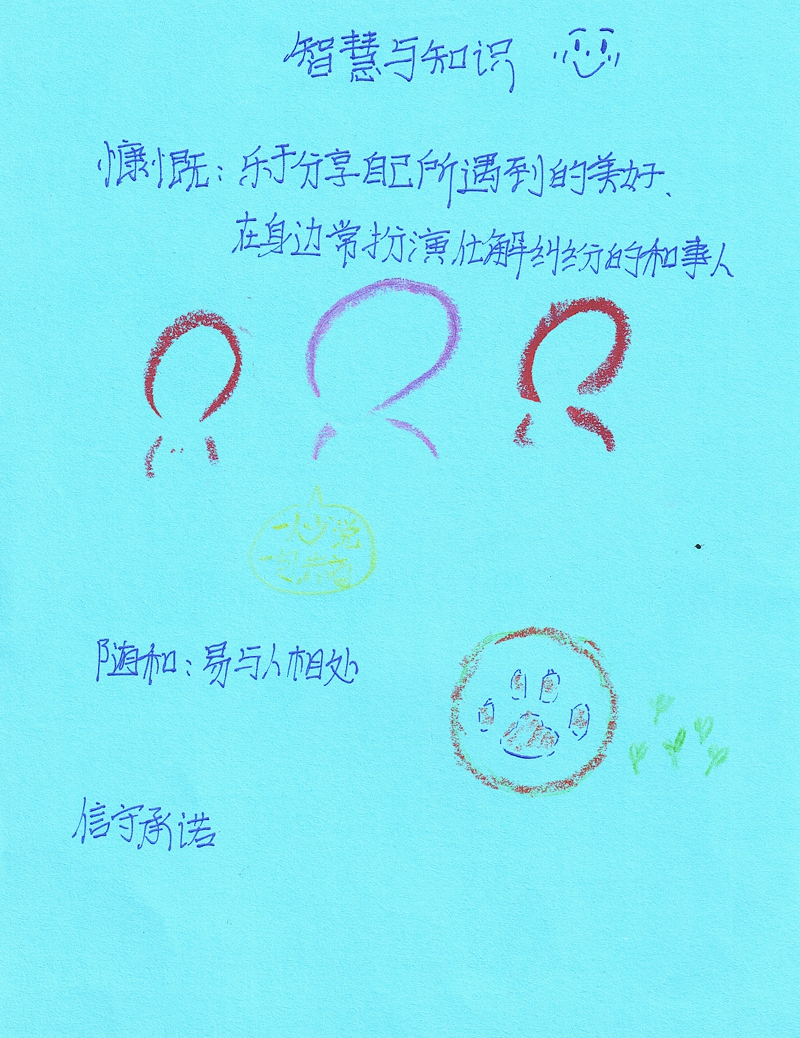 智慧与知识
慷慨：乐于分享自己所遇到的美好、
在身边常扮演仕解纠纷的和事人
一人少说
随和：易与人相处
信守承诺